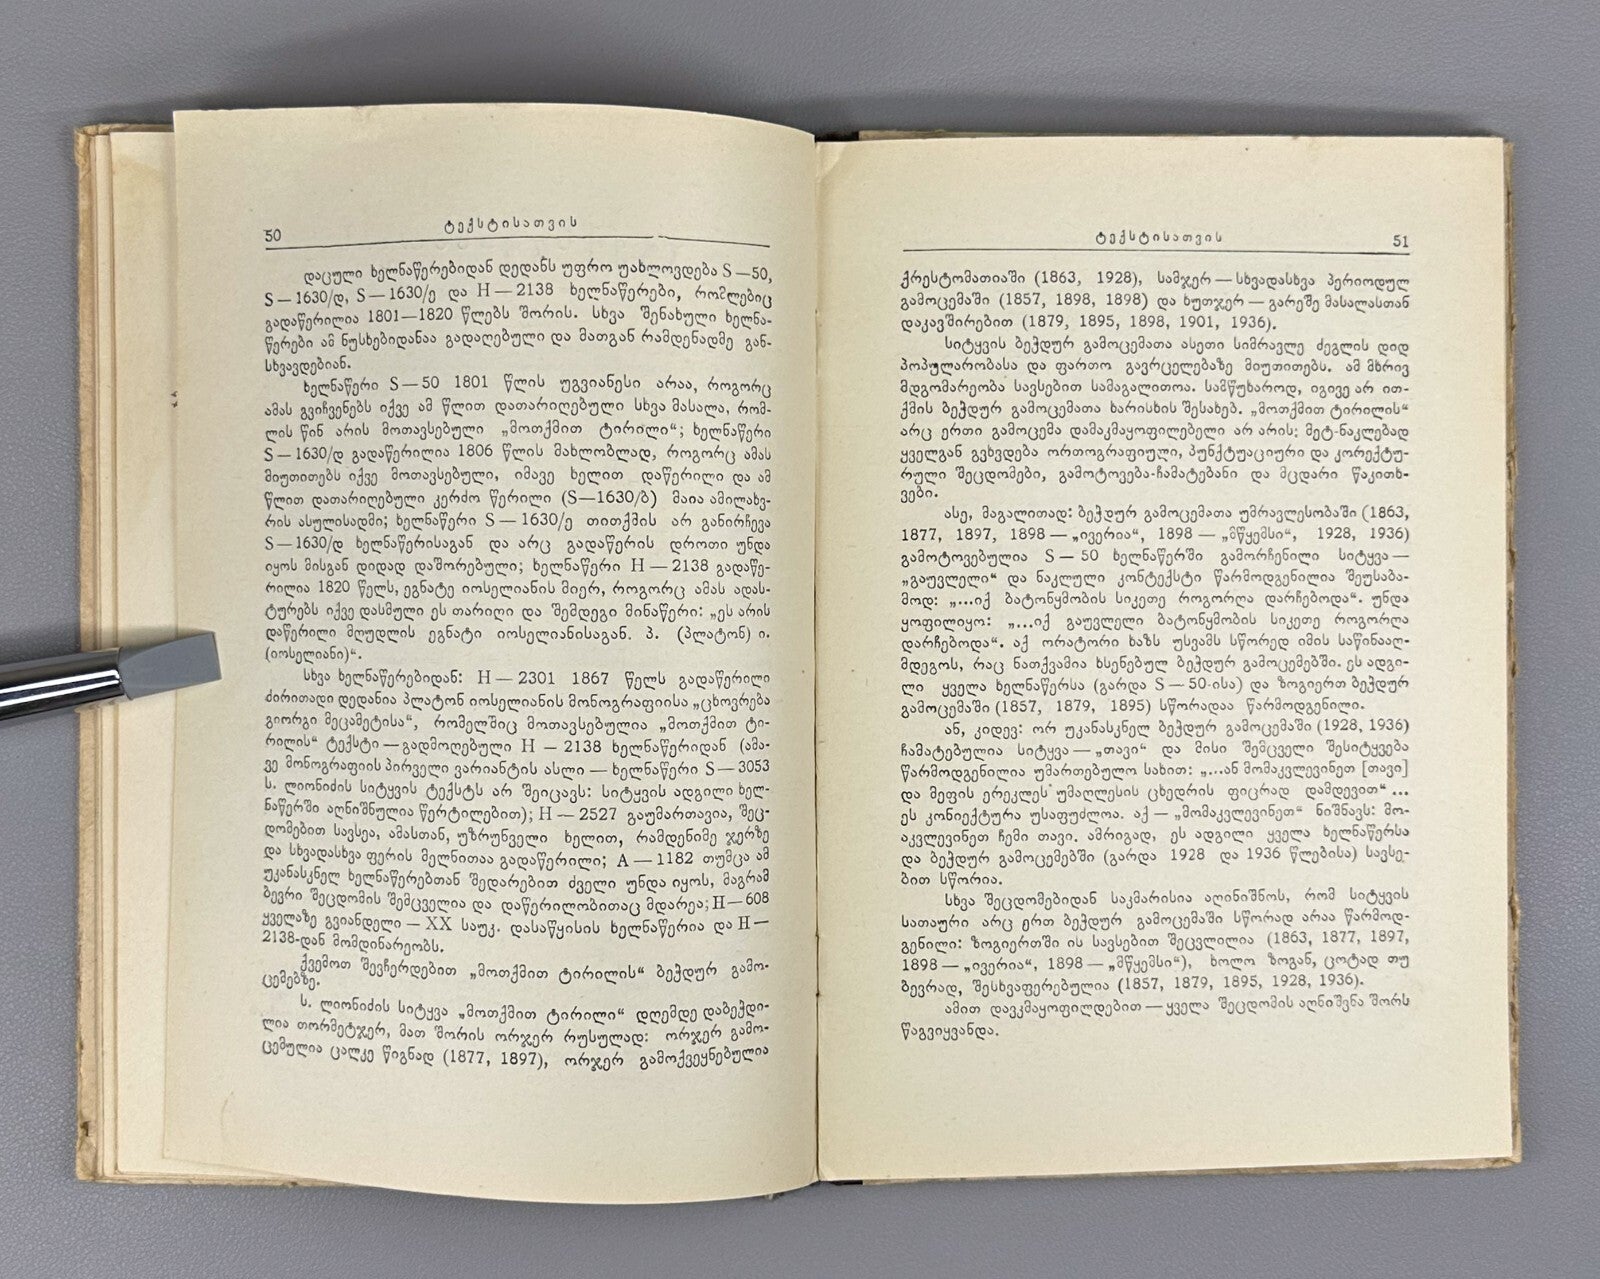 50
ტექსტისათვის
დაცული ხელნაწერებიდან დედანს უფრო უახლოვდება S—50,
S—1630/დ, S—1630/ე და H—2138 ხელნაწერები, რომლებიც
გადაწერილია 1801—1820 წლებს შორის. სხვა შენახული ხელნა-
წერები ამ ნუსხებიდანაა გადაღებული და მათგან რამდენადმე გან-
სხვავდებიან.
ხელნაწერი S—50 1801 წლის უგვიანესი არაა, როგორც
ამას გვიჩვენებს იქვე ამ წლით დათარიღებული სხვა მასალა, რომ-
ლის წინ არის მოთავსებული „მოთქმით ტირილი“; ხელნაწერი
S—1630/დ გადაწერილია 1806 წლის მახლობლად, როგორც ამას
მიუთითებს იქვე მოთავსებული, იმავე ხელით დაწერილი და ამ
წლით დათარიღებული კერძო წერილი (S—1630/ბ) მაია ამილახვ-
რის ასულისადმი; ხელნაწერი S—1630/ე თითქმის არ განირჩევა
S—1630/დ ხელნაწერისაგან და არც გადაწერის დროთი უნდა
იყოს მისგან დიდად დაშორებული; ხელნაწერი H—2138 გადაწე-
რილია 1820 წელს, ეგნატე იოსელიანის მიერ, როგორც ამას ადას-
ტურებს იქვე დასმული ეს თარიღი და შემდეგი მინაწერი: „ეს არის
დაწერილი მღუდლის ეგნატი იოსელიანისაგან. პ. (პლატონ) ი.
(იოსელიანი)“.
სხვა ხელნაწერებიდან: H—2301 1867 წელს გადაწერილი
ძირითადი დედანია პლატონ იოსელიანის მონოგრაფიისა „ცხოვრება
გიორგი მეცამეტისა“, რომელშიც მოთავსებულია „მოთქმით ტი-
რილის“ ტექსტი—გადმოღებული H—2138 ხელნაწერიდან (ამა-
ვე მონოგრაფიის პირველი ვარიანტის ასლი—ხელნაწერი S—3053
ს. ლიონიძის სიტყვის ტექსტს არ შეიცავს: სიტყვის ადგილი ხელ-
ნაწერში აღნიშნულია წერტილებით); H—2527 გაუმართავია, შეც-
დომებით სავსეა, ამასთან, უზრუნველი ხელით, რამდენიმე ჯერზე
და სხვადასხვა ფერის მელნითაა გადაწერილი; A—1182 თუმცა ამ
უკანასკნელ ხელნაწერებთან შედარებით ძველი უნდა იყოს, მაგრამ
ბევრი შეცდომის შემცველია და დაწერილობითაც მდარეა; H—608
ყველაზე გვიანდელი—XX საუკ. დასაწყისის ხელნაწერია და H—
2138-დან მომდინარეობს.
ქვემოთ შევჩერდებით „მოთქმით ტირილის“ ბეჭდურ გამო-
ცემებზე.
ს. ლიონიძის სიტყვა „მოთქმით ტირილი“ დღემდე დაბეჭდი-
ლია თორმეტჯერ, მათ შორის ორჯერ რუსულად: ორჯერ გამო-
ცემულია ცალკე წიგნად (1877, 1897), ორჯერ გამოქვეყნებულია
ტექსტისათვის
51
ქრესტომათიაში (1863, 1928), სამჯერ—სხვადასხვა პერიოდულ
გამოცემაში (1857, 1898, 1898) და ხუთჯერ—გარეშე მასალასთან
დაკავშირებით (1879, 1895, 1898, 1901, 1936).
სიტყვის ბეჭდურ გამოცემათა ასეთი სიმრავლე ძეგლის დიდ
პოპულარობასა და ფართო გავრცელებაზე მიუთითებს. ამ მხრივ
მდგომარეობა სავსებით სამაგალითოა. სამწუხაროდ, იგივე არ ით-
ქმის ბეჭდურ გამოცემათა ხარისხის შესახებ. „მოთქმით ტირილის“
არც ერთი გამოცემა დამაკმაყოფილებელი არ არის: მეტ-ნაკლებად
ყველგან გვხვდება ორთოგრაფიული, პუნქტუაციური და კორექტუ-
რული შეცდომები, გამოტოვება-ჩამატებანი და მცდარი წაკითხ-
ვები.
ასე, მაგალითად: ბეჭდურ გამოცემათა უმრავლესობაში (1863,
1877, 1897, 1898—„ივერია“, 1898—„მწყემსი“, 1928, 1936)
გამოტოვებულია S—50 ხელნაწერში გამორჩენილი სიტყვა—
„გაუვლელი“ და ნაკლული კონტექსტი წარმოდგენილია შეუსაბა-
მოდ: „...იქ ბატონყმობის სიკეთე როგორღა დარჩებოდა“. უნდა
ყოფილიყო: „...იქ გაუვლელი ბატონყმობის სიკეთე როგორღა
დარჩებოდა“. აქ ორატორი ხაზს უსვამს სწორედ იმის საწინააღ-
მდეგოს, რაც ნათქვამია ხსენებულ ბეჭდურ გამოცემებში. ეს ადგი-
ლი ყველა ხელნაწერსა (გარდა S—50-ისა) და ზოგიერთ ბეჭდურ
გამოცემაში (1857, 1879, 1895) სწორადაა წარმოდგენილი.
ან, კიდევ: ორ უკანასკნელ ბეჭდურ გამოცემაში (1928, 1936)
ჩამატებულია სიტყვა—„თავი“ და მისი შემცველი შესიტყვება
წარმოდგენილია უმართებულო სახით: „...ან მომაკვლევინეთ [თავი]
და მეფის ერეკლეს უმაღლესის ცხედრის ფიცრად დამდევით“...
ეს კონიექტურა უსაფუძლოა. აქ—„მომაკვლევინეთ“ ნიშნავს: მო-
აკვლევინეთ ჩემი თავი. ამრიგად, ეს ადგილი ყველა ხელნაწერსა
და ბეჭდურ გამოცემებში (გარდა 1928 და 1936 წლებისა) სავსე-
ბით სწორია.
სხვა შეცდომებიდან საკმარისია აღინიშნოს, რომ სიტყვის
სათაური არც ერთ ბეჭდურ გამოცემაში სწორად არაა წარმოდ-
გენილი: ზოგიერთში ის სავსებით შეცვლილია (1863, 1877, 1897,
1898—„ივერია“, 1898—„მწყემსი“), ხოლო ზოგან, ცოტად თუ
ბევრად, შესხვაფერებულია (1857, 1879, 1895, 1928, 1936).
ამით დავკმაყოფილდებით—ყველა შეცდომის აღნიშვნა შორს
წაგვიყვანდა.